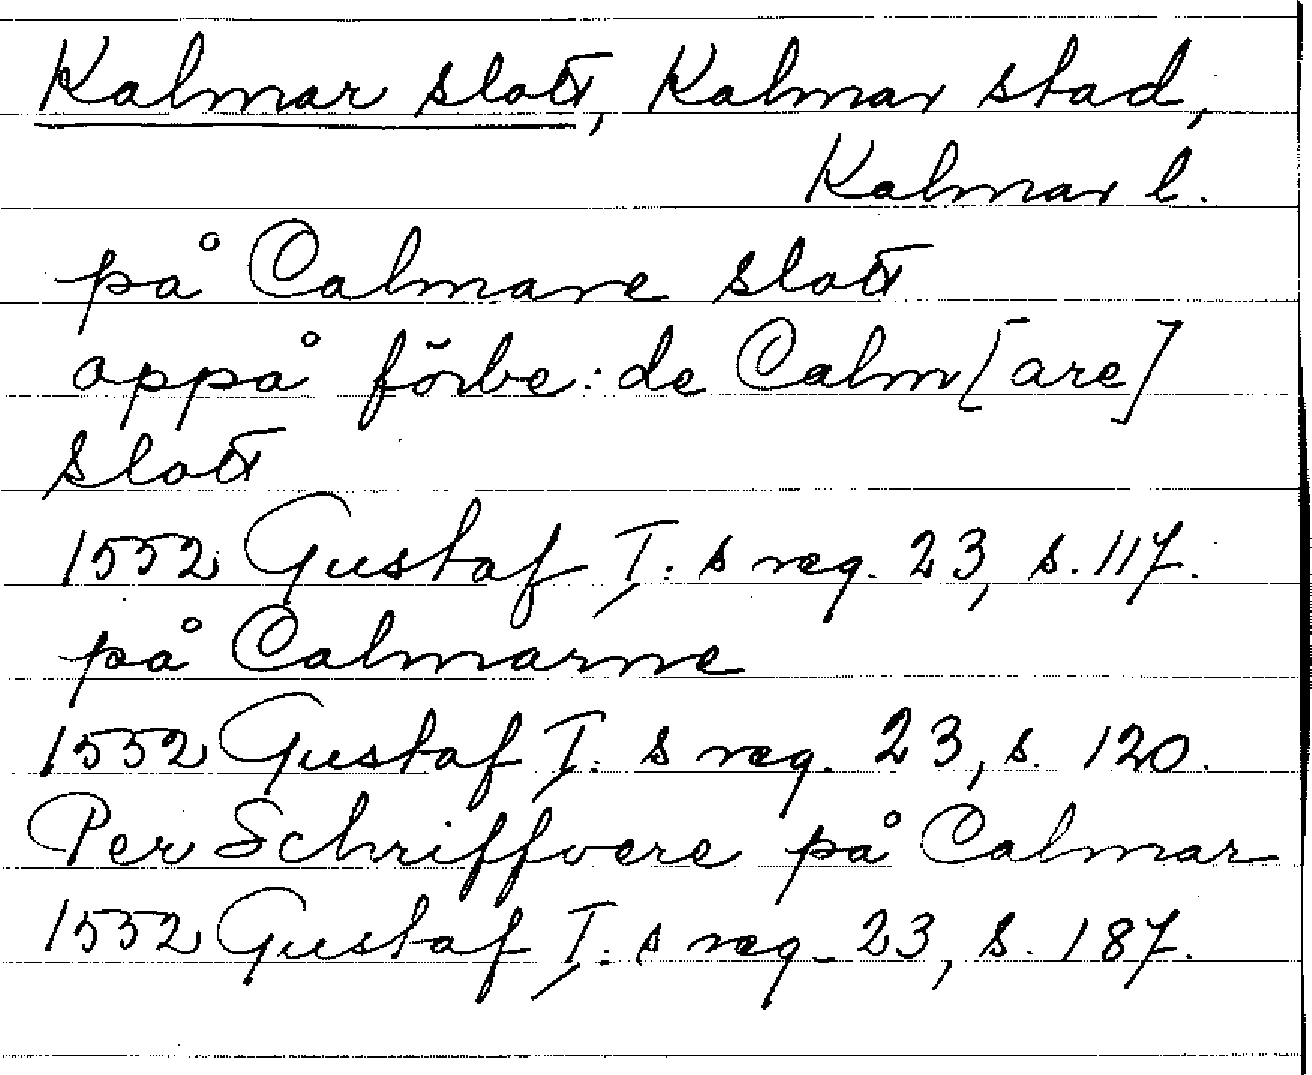 Kalmar slott, Kalmar stad,
Kalmar l.
på Calmare slott
oppå förbe:de Calm[are]
slott
1552 Gustaf I:s reg. 23, s. 117.
på Calmarne
1552 Gustaf I:s reg. 23, s. 120.
Per Schriffvere på Calmar
1552 Gustaf I:s reg. 23, s. 187.